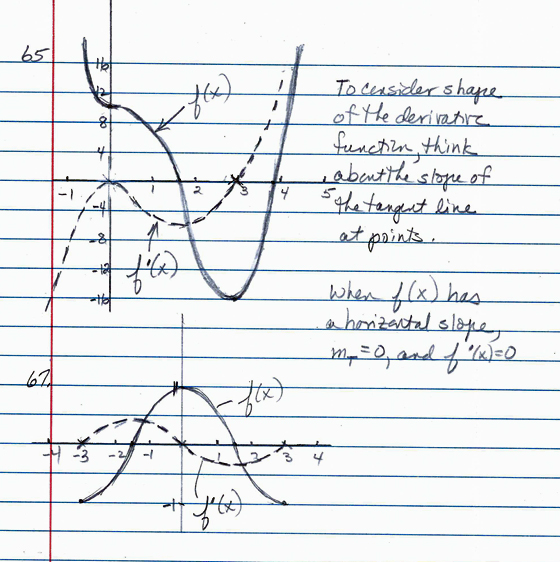 65
16
12
8
4
f(x)
-1 1 2 3 4 5
-4
-8
-12
-16
f'(x)
To consider shape
of the derivative
function, think
about the slope of
the tangent line
at points.
When f(x) has
a horizontal slope,
m_T = 0, and f'(x)=0
67.
f(x)
-4 -3 -2 -1 1 2 3 4
-1
f'(x)